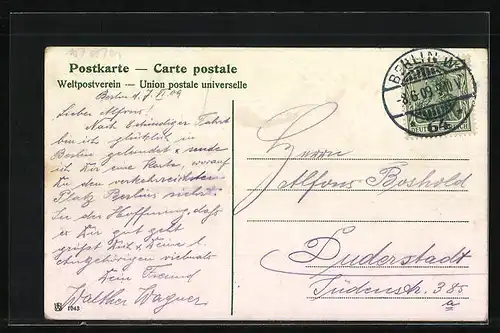 Postkarte — Carte postale
Weltpostverein — Union postale universelle
Berlin d. 7. VI 09
Lieber Alfons!
Nach 8stündiger Fahrt
bin ich glücklich in
Berlin gelandet & sende
ich Dir eine Karte, worauf
Du den verkehrsreichsten
Platz Berlins siehst.
In der Hoffnung, daß
es Dir gut geht
grüßt Dich & Deine l.
Angehörigen vielmals
Dein Freund
Walther Wagner
1043
BERLIN W
-8.6.09. V
64
Herrn
Alfons Boshold
Duderstadt
Südenstr. 385
a